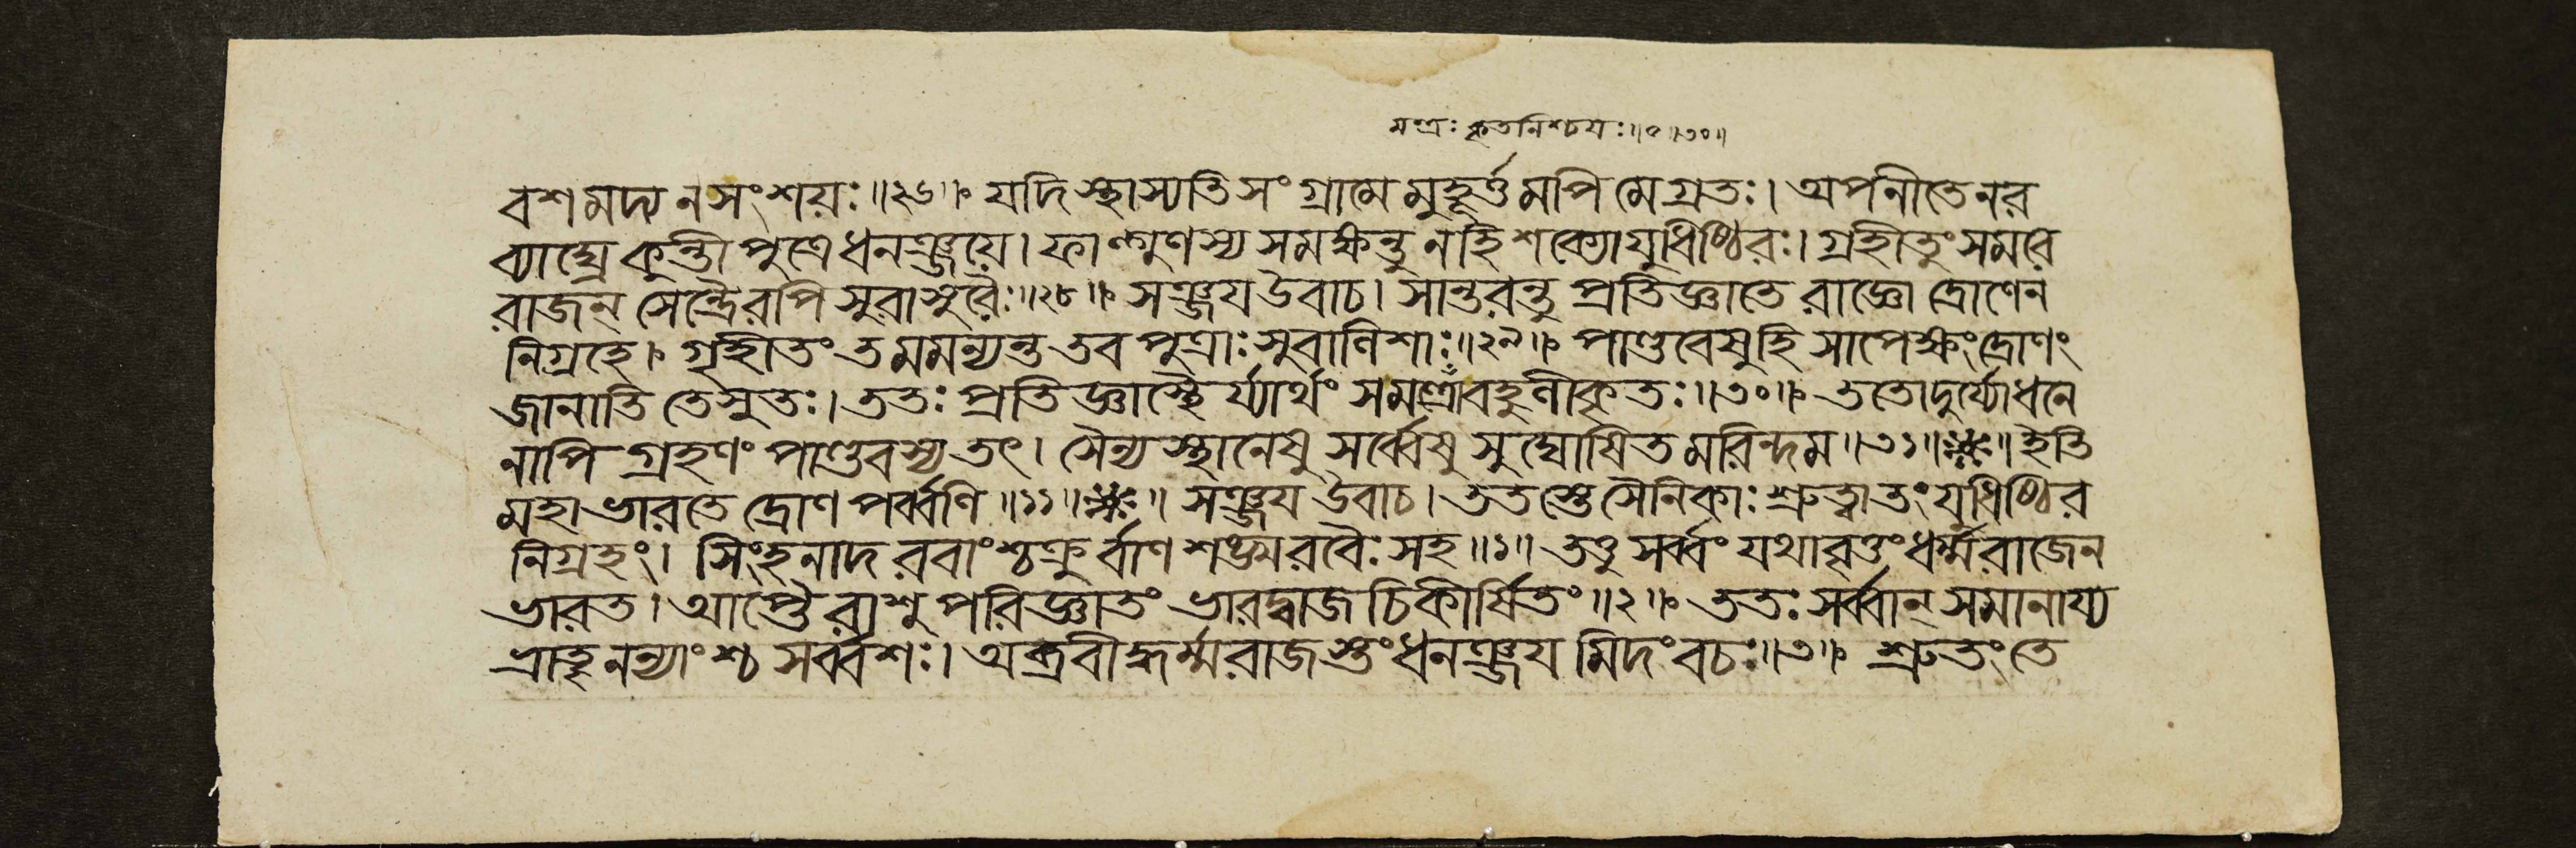 মন্ত্রঃ কৃতনিশ্চয়ঃ॥৫॥৩০॥
বশমদ্য ন সংশয়ঃ॥২৬॥ যদি স্থাস্যতি সংগ্রামে মুহূর্ত্তমপি মেগ্রতঃ। অপনীতে নর
ব্যাঘ্রে কুন্তীপুত্রে ধনঞ্জয়ে। ফাল্গুণস্য সমক্ষন্তু নহি শক্যো যুধিষ্ঠিরঃ। গ্রহীতুং সমরে
রাজন্ সেন্দ্রৈরপি সুরাসুরৈঃ॥২৮॥ সঞ্জয় উবাচ। সান্তরন্তু প্রতিজ্ঞাতে রাজ্ঞো দ্রোণেন
নিগ্রহে। গৃহীতং তমমন্যন্ত তব পুত্রাঃ সুবালিশাঃ॥২৯॥ পাণ্ডবেষু হি সাপেক্ষং দ্রোণং
জানাতি তে সুতঃ। ততঃ প্রতিজ্ঞাস্থৈর্য্যার্থং সমন্ত্রাঁবহুলীকৃতঃ॥৩০॥ ততো দুর্য্যোধনে
নাপি গ্রহণং পাণ্ডবস্য তৎ। সৈন্যস্থানেষু সর্ব্বেষু সুঘোষিতমরিন্দম॥৩১॥ ॥ ইতি
মহাভারতে দ্রোণপর্ব্বণি॥১১॥ ॥ সঞ্জয় উবাচ। ততস্তে সৈনিকাঃ শ্রুত্বা তং যুধিষ্ঠির
নিগ্রহং। সিংহনাদরবাংশ্চক্রুর্ব্বাণশঙ্খরবৈঃ সহ॥১॥ তত্তু সর্ব্বং যথাবৃত্তং ধর্ম্মরাজেন
ভারত। আপ্তৈরাশু পরিজ্ঞাতং ভারদ্বাজচিকীর্ষিতং॥২॥ ততঃ সর্ব্বান্ সমানায্য
ভ্রাতৄনন্যাংশ্চ সর্ব্বশঃ। অব্রবীদ্ধর্ম্মরাজস্তং ধনঞ্জয়মিদং বচঃ॥৩॥ শ্রুতং তে